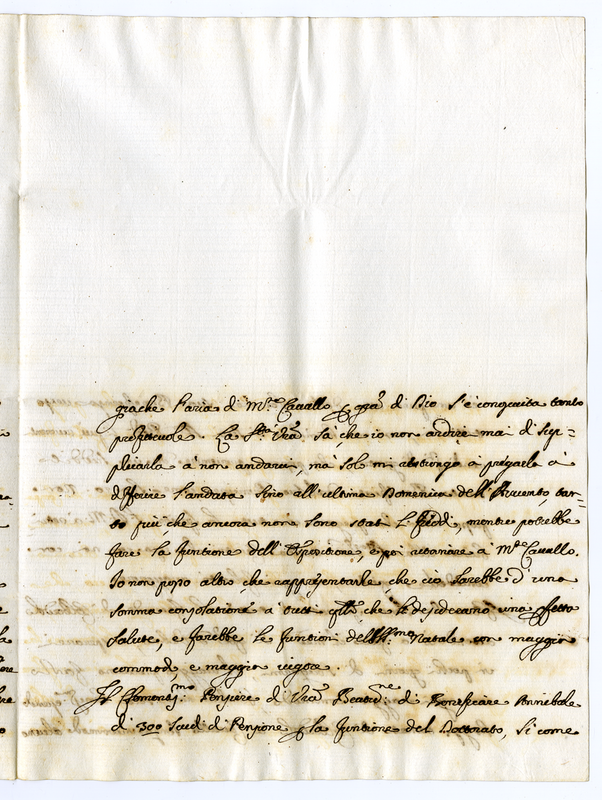 giache l'aria di M.te Cavallo p gra di Dio l'è conosciuta tanto
profittevole. La S.tà Vra sà che io non ardirei mai di sup=
plicarla à non andarvi, mà solo mi astringo à pregarla à
differire l'andata sino all'ultima Domenica dell'Avvento, tan=
to più che ancora non sono stati li freddi, mentre potrebbe
fare la funtione dell'Espositione, e poi ritornare à M.te Cavallo.
Io non posso altro che rappresentarle, che ciò sarebbe d'una
somma consolatione a tutti quelli, che le desiderano una perfetta
salute, e farebbe le funtioni del SS.mo Natale con maggior
commodo, e maggior vigore.
Il Clementiss.mo Pensiere di Vra Beatid.ne di beneficiare Annibale
di 300 scudi di Pensione p la funtione del Dottorato, si come